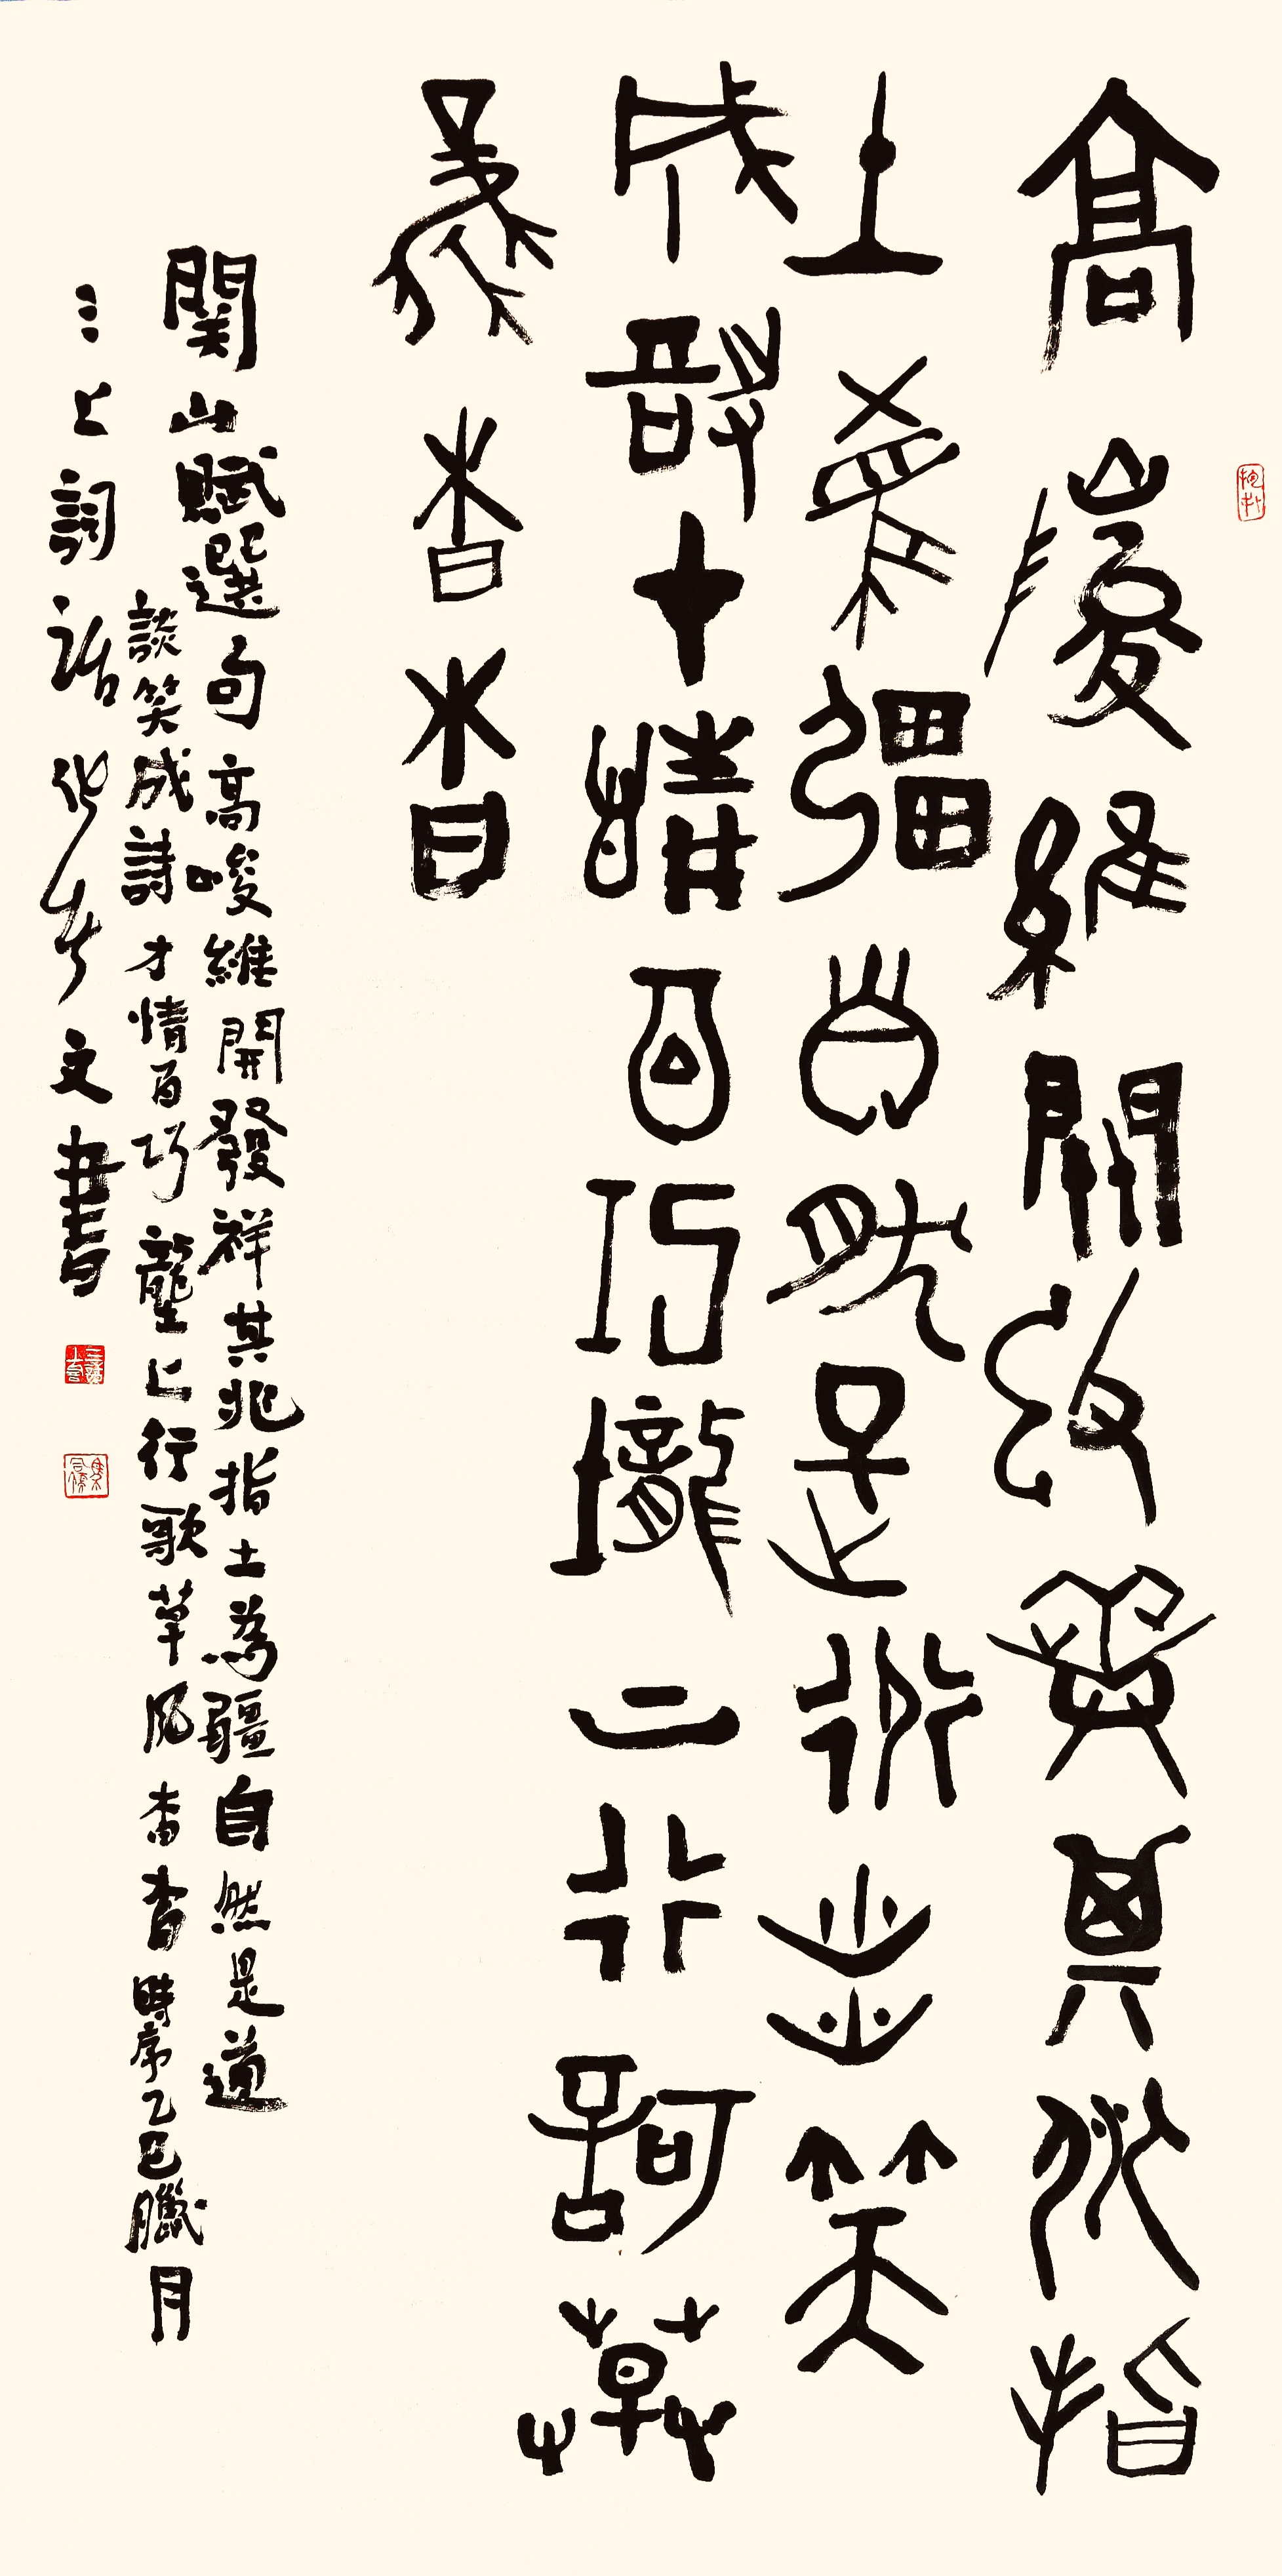 高峻維開發祥其兆指
土為疆自然是道談笑
成詩才情百巧壟上行歌草
風杳杳
關山賦選句高峻維開發祥其兆指土為疆自然是道
談笑成詩才情百巧壟上行歌草風杳杳時序乙巳臘月
三上詞話文書
抱朴